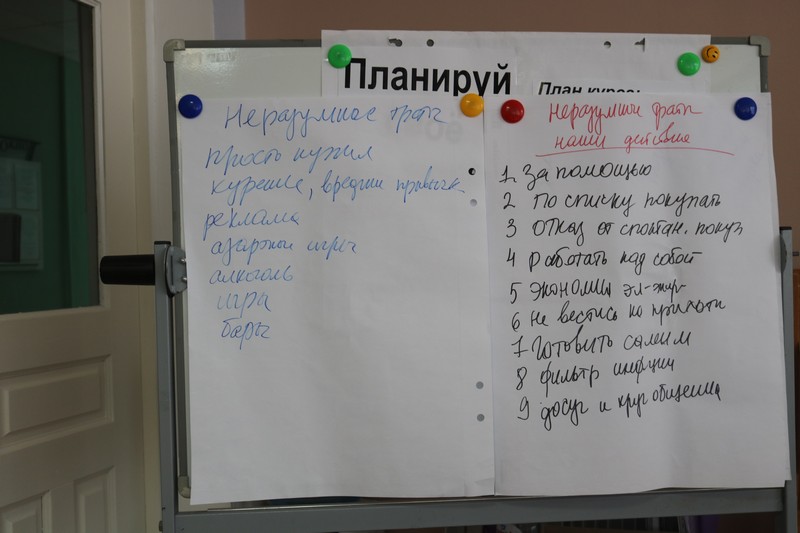 Планируй
План курса:
Неразумное траты
просто купил
курение, вредных привычек
реклама
азартные игры
алкоголь
игра
бары
Неразумные траты
наши действия
1. За помощью
2 По списку покупать
3 Отказ от спонтан. покуп
4 работать над собой
5 экономия эл-энер-
6 не вестись на прихоти
7 готовить самим
8 фильтр информ
9 досуг и круг общения